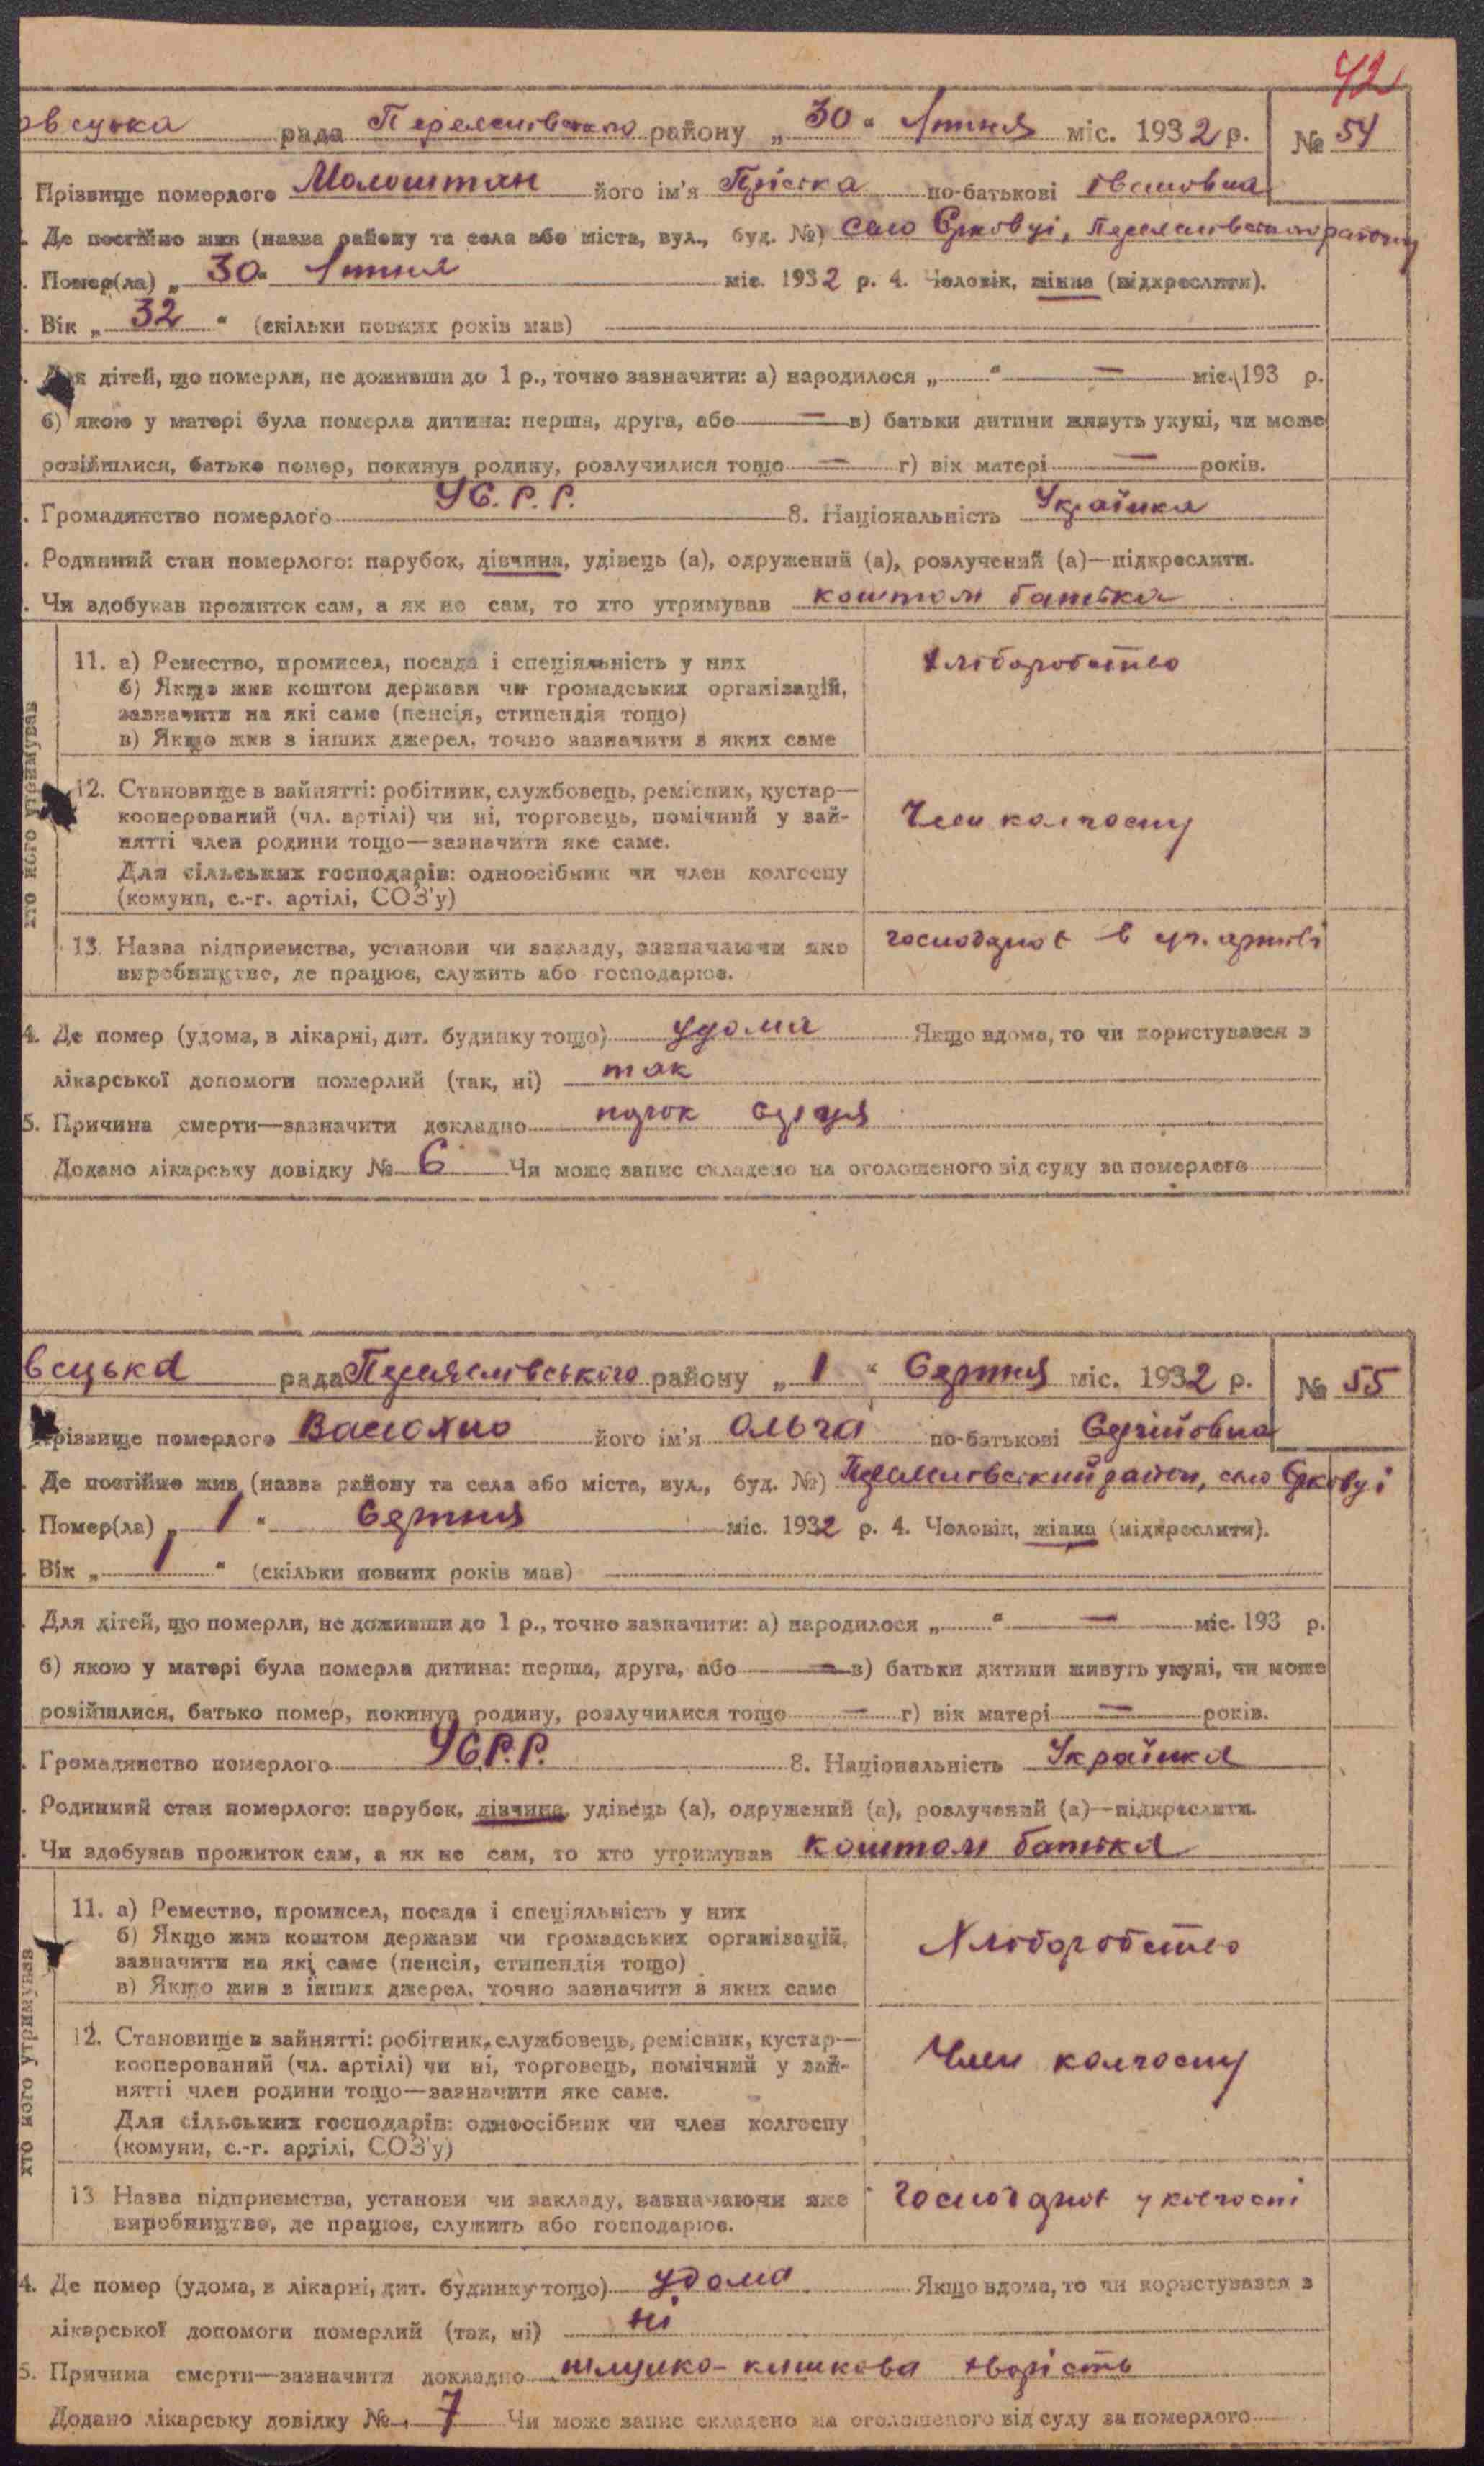 42
рада Переяслівського району „ 30 “ Липня міс. 1932 р. № 54
Прізвище померлого Молоштан його ім'я Пріська по-батькові Івановна
Де постійно жив (назва району та села або міста, вул., буд. №) село Єрковці, Переяслівського району
Помер(ла) „ 30 “ Липня міс. 1932 р. 4. Чоловік, жінка (підкреслити).
Вік „ 32 “ (скільки повних років мав)
Для дітей, що померли, не доживши до 1 р., точно зазначити: а) народилося „ “ — міс. 193 р.
б) якою у матері була померла дитина: перша, друга, або — в) батьки дитини живуть укупі, чи може
розійшлися, батько помер, покинув родину, розлучилися тощо — г) вік матері — років.
Громадянство померлого У.С.Р.Р. 8. Національність Українка
Родинний стан померлого: парубок, дівчина, удівець (а), одружений (а), розлучений (а)—підкреслити.
Чи здобував прожиток сам, а як не сам, то хто утримував коштом батька
хто його утримував
11. а) Ремество, промисел, посада і спеціяльність у них Хліборобство
б) Якщо жив коштом держави чи громадських організацій,
зазначити на які саме (пенсія, стипендія тощо)
в) Якщо жив з інших джерел, точно зазначити з яких саме
12. Становище в зайнятті: робітник, службовець, ремісник, кустар—
кооперований (чл. артілі) чи ні, торговець, помічний у зай-
нятті член родини тощо—зазначити яке саме. Член колгоспу
Для сільських господарів: одноосібник чи член колгоспу
(комуни, с.-г. артілі, СОЗ'у)
13. Назва підприємства, установи чи закладу, зазначаючи яке господарює в с.г. артілі
виробництво, де працює, служить або господарює.
4. Де помер (удома, в лікарні, дит. будинку тощо) удома Якщо вдома, то чи користувався з
лікарської допомоги померлий (так, ні) так
5. Причина смерти—зазначити докладно порок серця
Додано лікарську довідку № 6 Чи може запис складено на оголошеного від суду за померлого
вецька рада Переяслівського району „ 1 “ Серпня міс. 1932 р. № 55
Прізвище померлого Васюхно його ім'я Ольга по-батькові Сергійовна
Де постійно жив (назва району та села або міста, вул., буд. №) Переяслівський район, село Єрковці
Помер(ла) „ 1 “ Серпня міс. 1932 р. 4. Чоловік, жінка (підкреслити).
Вік „ 1 “ (скільки повних років мав)
Для дітей, що померли, не доживши до 1 р., точно зазначити: а) народилося „ “ — міс. 193 р.
б) якою у матері була померла дитина: перша, друга, або — в) батьки дитини живуть укупі, чи може
розійшлися, батько помер, покинув родину, розлучилися тощо — г) вік матері — років.
Громадянство померлого УСР.Р. 8. Національність Українка
Родинний стан померлого: парубок, дівчина, удівець (а), одружений (а), розлучений (а)—підкреслити.
Чи здобував прожиток сам, а як не сам, то хто утримував коштом батька
хто його утримував
11. а) Ремество, промисел, посада і спеціяльність у них
б) Якщо жив коштом держави чи громадських організацій, Хліборобство
зазначити на які саме (пенсія, стипендія тощо)
в) Якщо жив з інших джерел, точно зазначити з яких саме
12. Становище в зайнятті: робітник, службовець, ремісник, кустар—
кооперований (чл. артілі) чи ні, торговець, помічний у зай- Член колгоспу
нятті член родини тощо—зазначити яке саме.
Для сільських господарів: одноосібник чи член колгоспу
(комуни, с.-г. артілі, СОЗ'у)
13 Назва підприємства, установи чи закладу, зазначаючи яке господарює у колгоспі
виробництво, де працює, служить або господарює.
4. Де помер (удома, в лікарні, дит. будинку тощо) удома Якщо вдома, то чи користувався з
лікарської допомоги померлий (так, ні) ні
5. Причина смерти—зазначити докладно шлунко-кишкова хворість
Додано лікарську довідку № 7 Чи може запис складено на оголошеного від суду за померлого